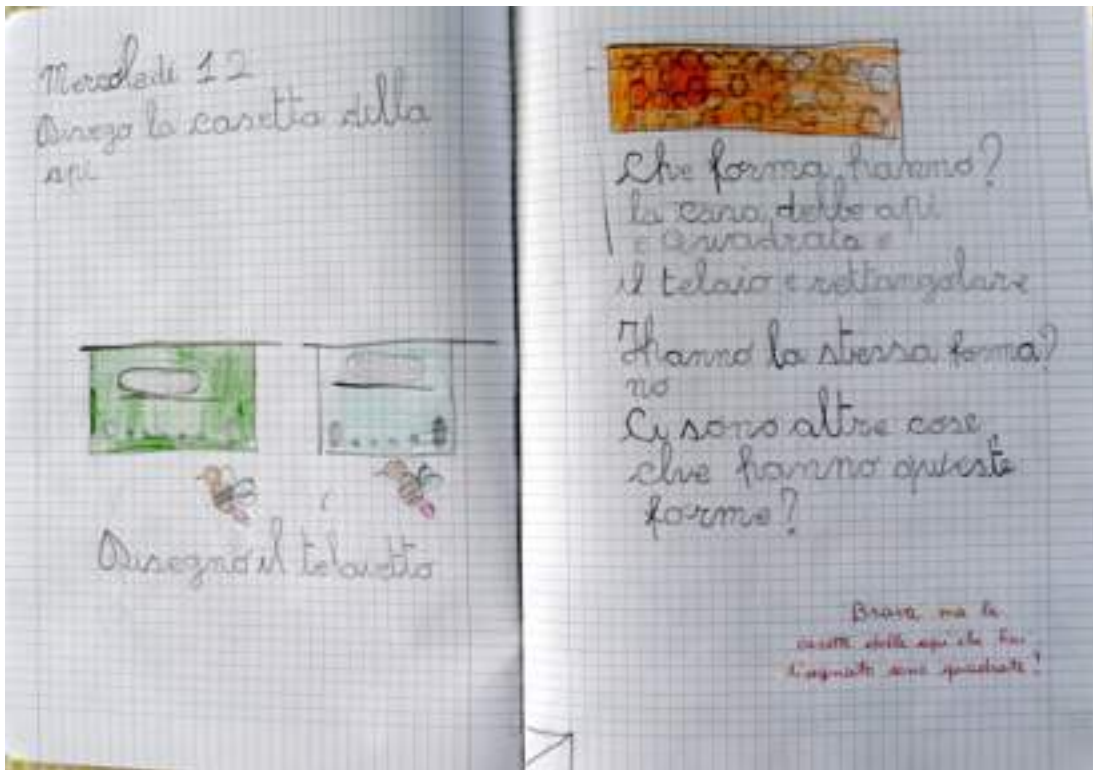 Mercoledi 12
Disego la casetta della
api
Disegno il telaietto
Che forma hanno?
la casa delle api
e Quadrata e
il telaio e rettangolare
Hanno la stessa forma?
no
Ci sono altre cose
che hanno queste
forme?
Brava ma le
casette delle api che hai
disegnato sono quadrate?